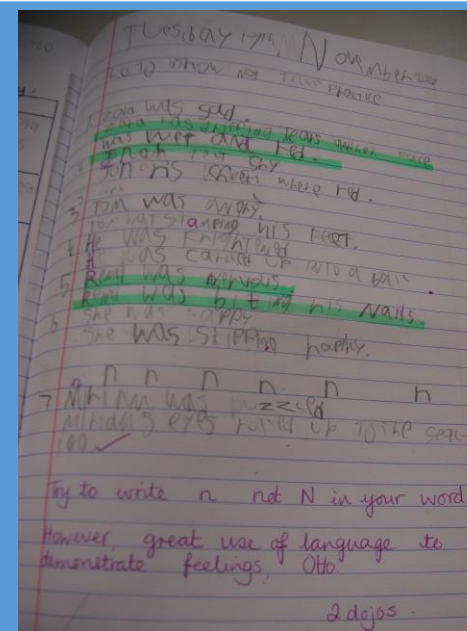 Tuesday 17th November
LO TO show not tell Practice
1. Zara was sad.
Zara was dripping tears and her face
was wet and red.
Jonah felt shy
cheers where red.
3. Tom was angry.
Tom was stamping his feet.
4. He was Frightened
He was carled up into a ball
5. Remi was nervous
Remi was biting his Nails.
6. She was happy
She was skipping happily.
n n n n n n
7 was puzzled
eyes rolled up to the
Try to write n not N in your word
However, great use of language to
demonstrate feelings, Otto
2 dojos.